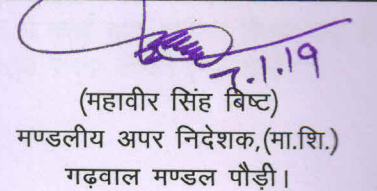 7.1.19
(महावीर सिंह बिष्ट)
मण्डलीय अपर निदेशक,(मा.शि.)
गढ़वाल मण्डल पौड़ी।